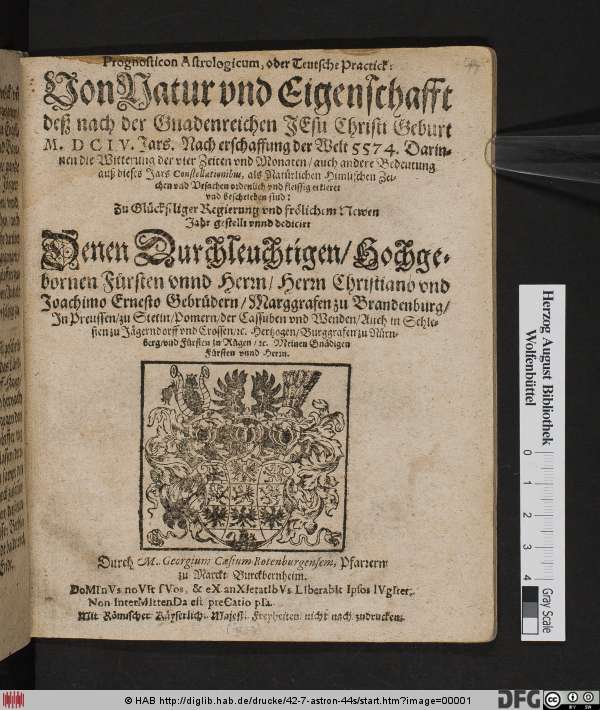 Prognosticon Astrologicum, oder Teutsche Practick:
Von Natur vnd Eigenschafft
deß nach der Gnadenreichen JEsu Christi Geburt
M. DCIV. Jars. Nach erschaffung der Welt 5574. Darin-
nen die Witterung der vier Zeiten vnd Monaten / auch andere Bedeutung
auß dieses Jars Constellationibus, als Natürlichen Himlischen Zei-
chen vnd Vrsachen ordenlich vnd fleissig erkleret
vnd beschrieben sind:
Zu Glückseliger Regierung vnd frölichem Newen
Jahr gestellt vnnd dediciert
Denen Durchleuchtigen / Hochge-
bornen Fürsten vnnd Herrn / Herrn Christiano vnd
Joachimo Ernesto Gebrüdern / Marggrafen zu Brandenburg /
In Preussen / zu Stetin / Pomern / der Cassuben vnd Wenden / Auch in Schle-
sien zu Jägerndorff vnd Crossen / ꝛc. Hertzogen / Burggrafen zu Nürn-
berg / vnd Fürsten in Rügen / ꝛc. Meinen Gnädigen
Fürsten vnnd Herrn.
Durch M. Georgium Cæsium Rotenburgensem, Pfarrern
zu Marckt Burckbernheim.
DoMInVs noVIt sVos, & eX anXIetatIbVs LIberabIt Ipsos IVgIter:
Non InterMIttenDa est preCatio pIa.
Mit Römischer Käyserlich. Majest. Freyheiten nicht nach zudrucken.
Herzog August Bibliothek
Wolfenbüttel
0 1 2 3 4
Gray Scale
© HAB http://diglib.hab.de/drucke/42-7-astron-44s/start.htm?image=00001
DFG
CC BY SA